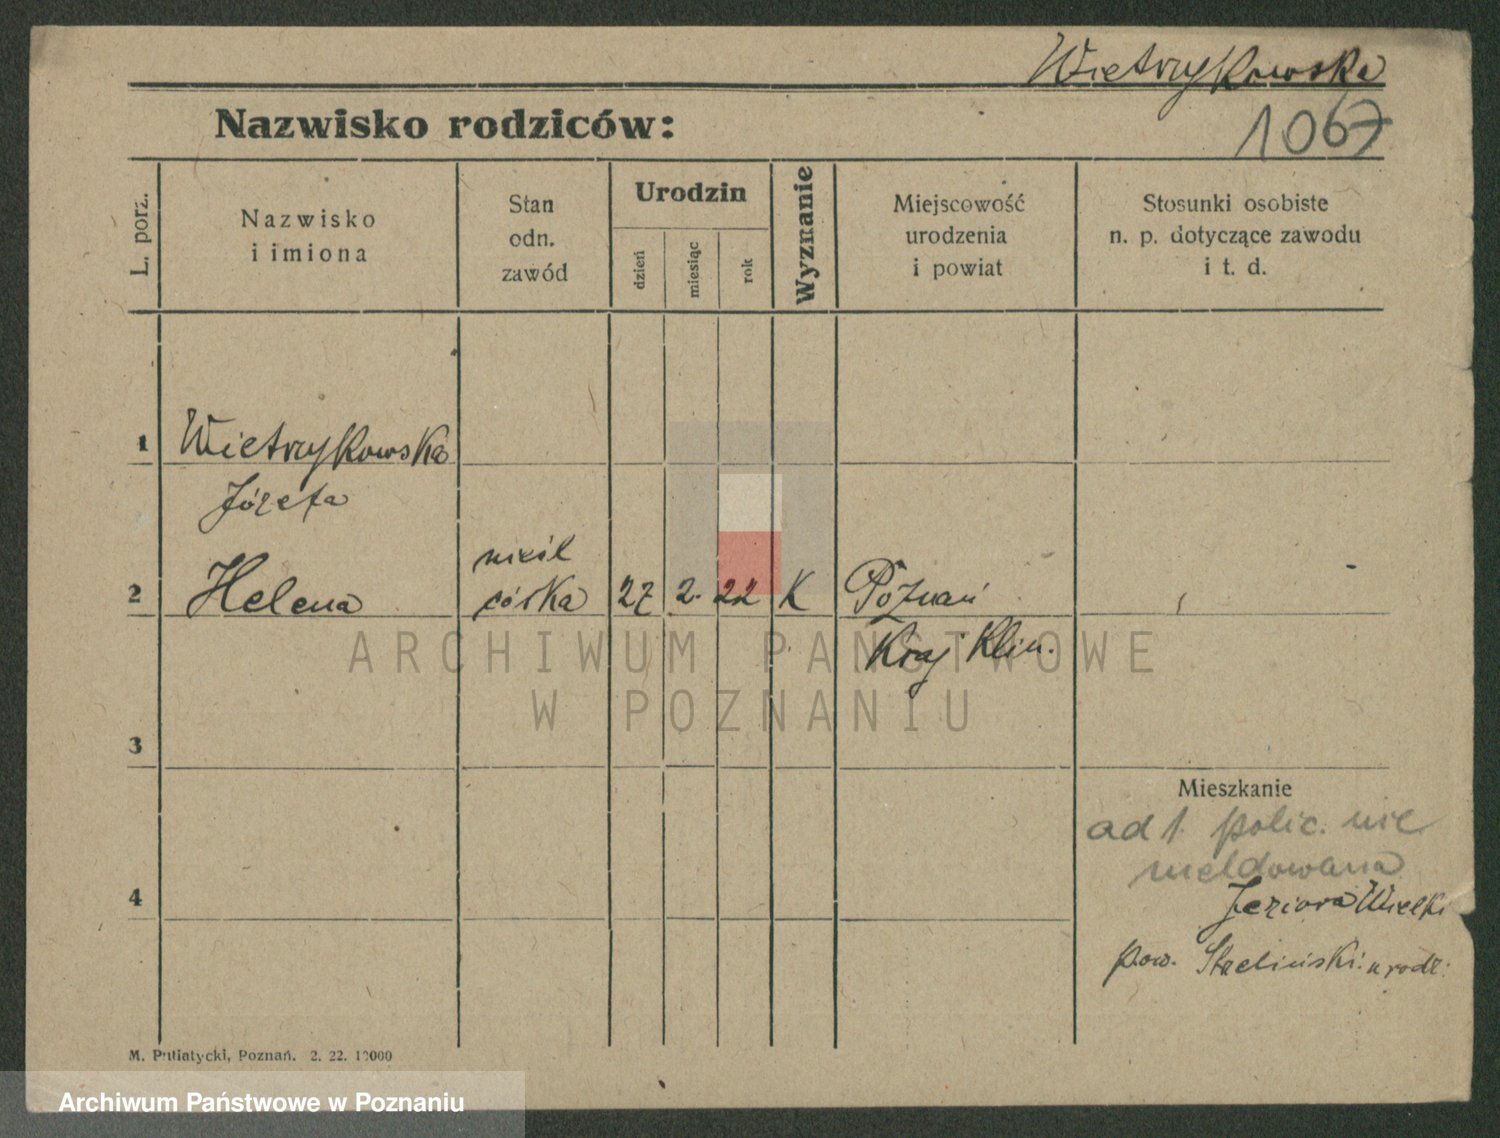 Wietrzykowska
Nazwisko rodziców:
1067
L. porz.
Nazwisko
i imiona
Stan
odn.
zawód
Urodzin
dzień
miesiąc
rok
Wyznanie
Miejscowość
urodzenia
i powiat
Stosunki osobiste
n. p. dotyczące zawodu
i t. d.
1 Wietrzykowska
Józefa
nieśl
2 Helena córka 27 2. 22 K Poznań
Kraj Klin.
ARCHIWUM PAŃSTWOWE
W POZNANIU
3
Mieszkanie
ad 1. polic. nie
meldowana
4
Jeziora Wielki
pow. u rodz.
M. Putiatycki, Poznań. 2. 22. 10000
Archiwum Państwowe w Poznaniu